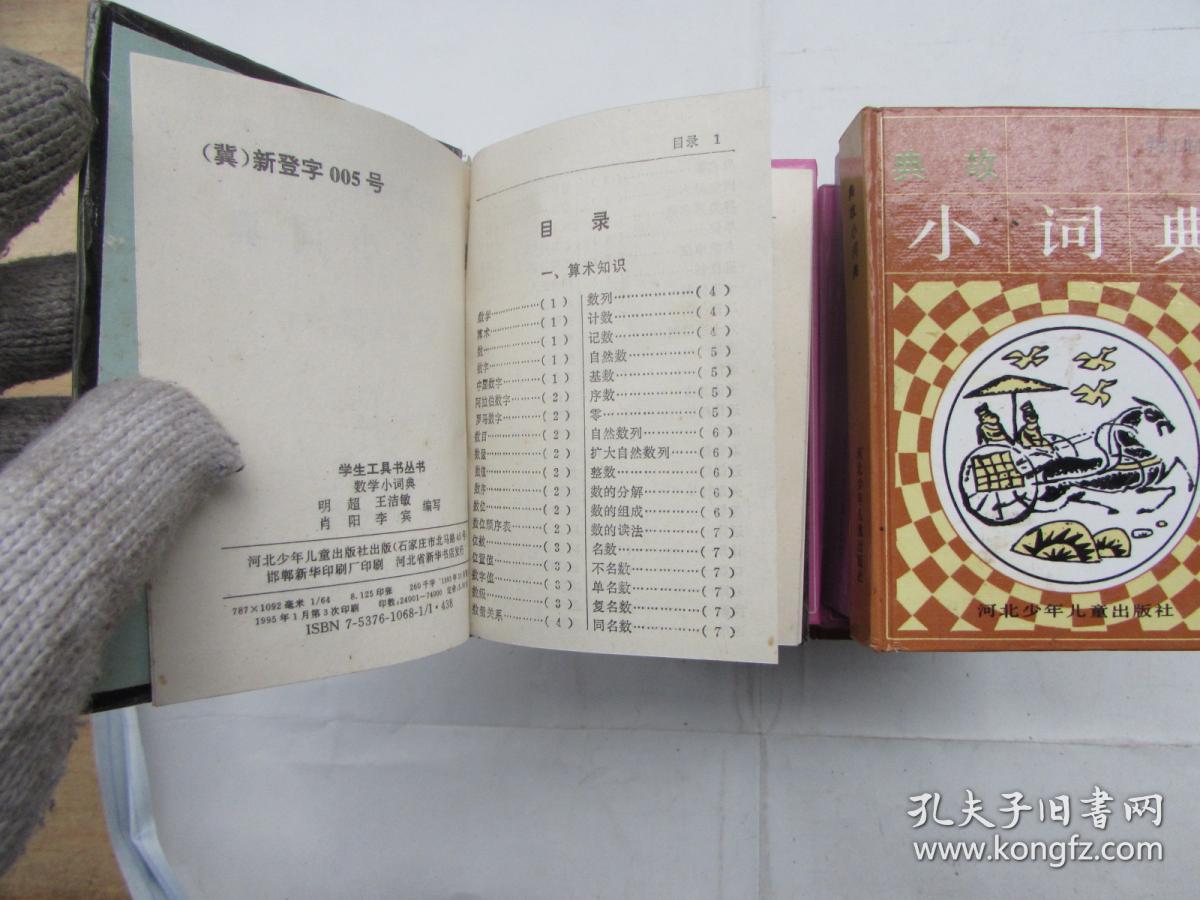 （冀）新登字 005 号
学生工具书丛书
数学小词典
明 超 王洁敏
肖 阳 李 宾 编写
河北少年儿童出版社出版（石家庄市北马路45号）
邯郸新华印刷厂印刷 河北省新华书店发行
787×1092毫米 1/64 8.125印张 260千字
1995年1月第3次印刷 印数：24001-74000
ISBN 7-5376-1068-1/I·438
目录 1
目 录
一、算术知识
数学…………（1）
算术…………（1）
数…………（1）
数字…………（1）
中国数字……（1）
阿拉伯数字……（2）
罗马数字……（2）
数目…………（2）
数量…………（2）
数值…………（2）
数序…………（2）
数位…………（2）
数位顺序表……（2）
位数…………（3）
位置值………（3）
数字值………（3）
数级…………（3）
数量关系……（4）
数列……………（4）
计数……………（4）
记数……………（4）
自然数…………（5）
基数……………（5）
序数……………（5）
零………………（5）
自然数列………（6）
扩大自然数列……（6）
整数……………（6）
数的分解………（6）
数的组成………（6）
数的读法………（7）
名数……………（7）
不名数…………（7）
单名数…………（7）
复名数…………（7）
同名数…………（7）
典故小词典
河北少年儿童出版社
典 故
小 词 典
河北少年儿童出版社
孔夫子旧书网
www.kongfz.com